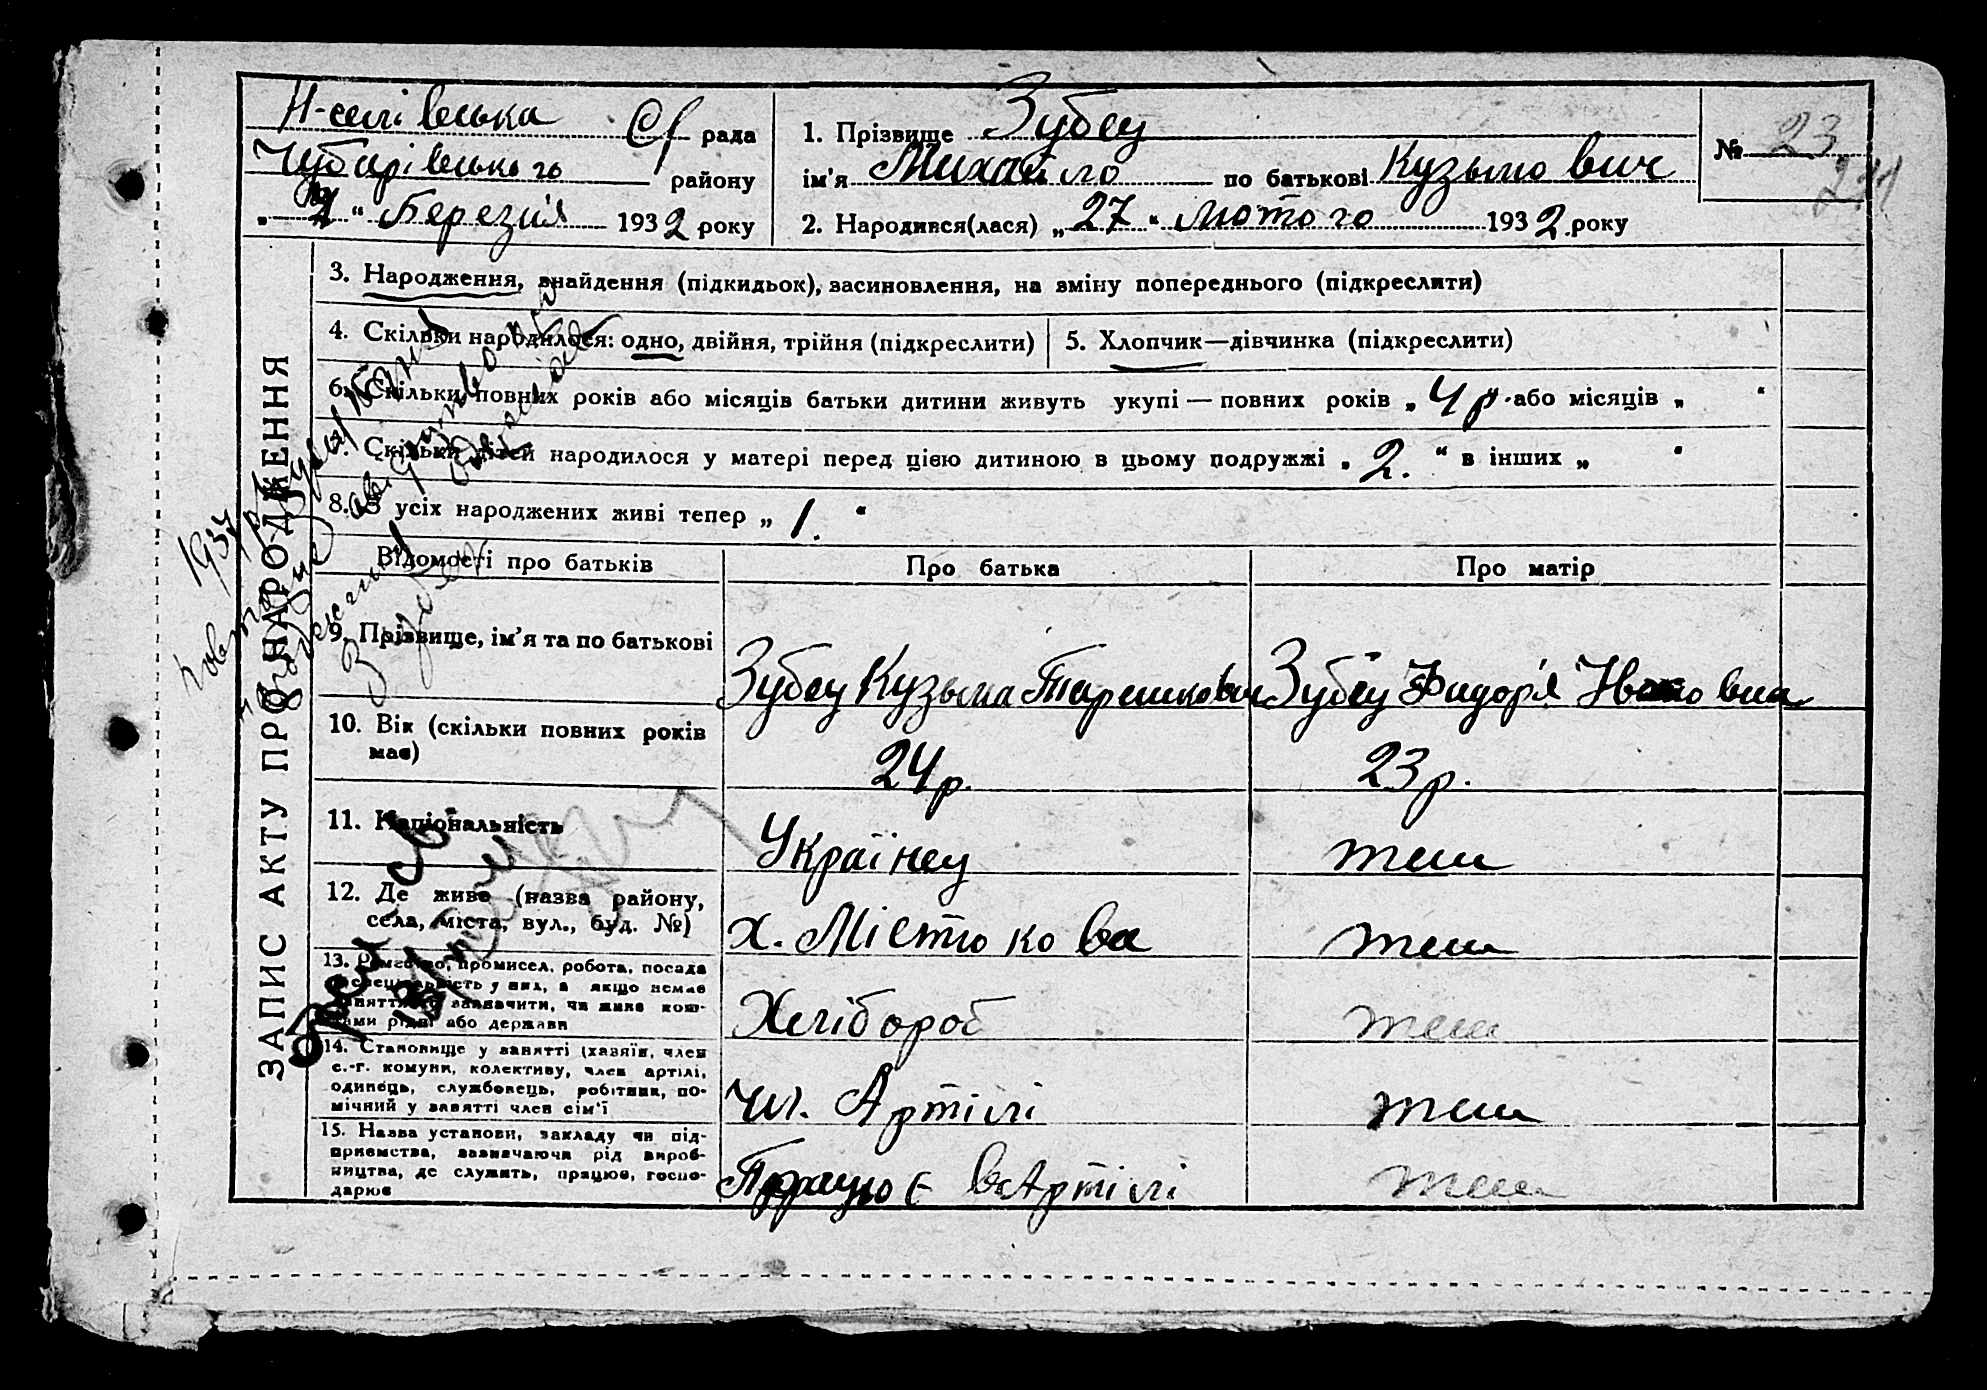 Н-селівська С/ рада
Чубарівського району
„ 4 “ Березня 1932 року
1. Прізвище Зубец
ім'я Михайло по батькові Кузьмович
2. Народився(лася) „ 27 “ лютого 1932 року
№ 23
ЗАПИС АКТУ ПРО НАРОДЖЕННЯ
3. Народження, знайдення (підкидьок), засиновлення, на зміну попереднього (підкреслити)
4. Скільки народилося: одно, двійня, трійня (підкреслити)
5. Хлопчик—дівчинка (підкреслити)
6. Скільки повних років або місяців батьки дитини живуть укупі — повних років „ 4 р. або місяців „ “
7. Скільки дітей народилося у матері перед цією дитиною в цьому подружжі „ 2. “ в інших „ “
8. З усіх народжених живі тепер „ 1. “
Відомості про батьків
Про батька
Про матір
9. Прізвище, ім'я та по батькові
Зубец Кузьма Тарешкович
Зубец Фидор'я Ивановна
10. Вік (скільки повних років має)
24 р.
23 р.
11. Національність
Українец
теш
12. Де живе (назва району,
села, міста, вул., буд. №)
х. Містюкова
теш
13. Ремество, промисел, робота, посада
спеціальність у них, а якщо немає
заняття зазначити, чи живе кош-
тами рідні або держави
Хлібороб
теш
14. Становище у занятті (хазяїн, член
с.-г. комуни, колективу, член артілі,
одинець, службовець, робітник, по-
мічний у занятті член сім'ї
Чл. Артілі
теш
15. Назва установи, закладу чи під-
приємства, зазначаючи рід вироб-
ництва, де служить, працює, госпо-
дарює
Працює в Артілі
теш
1937 р.